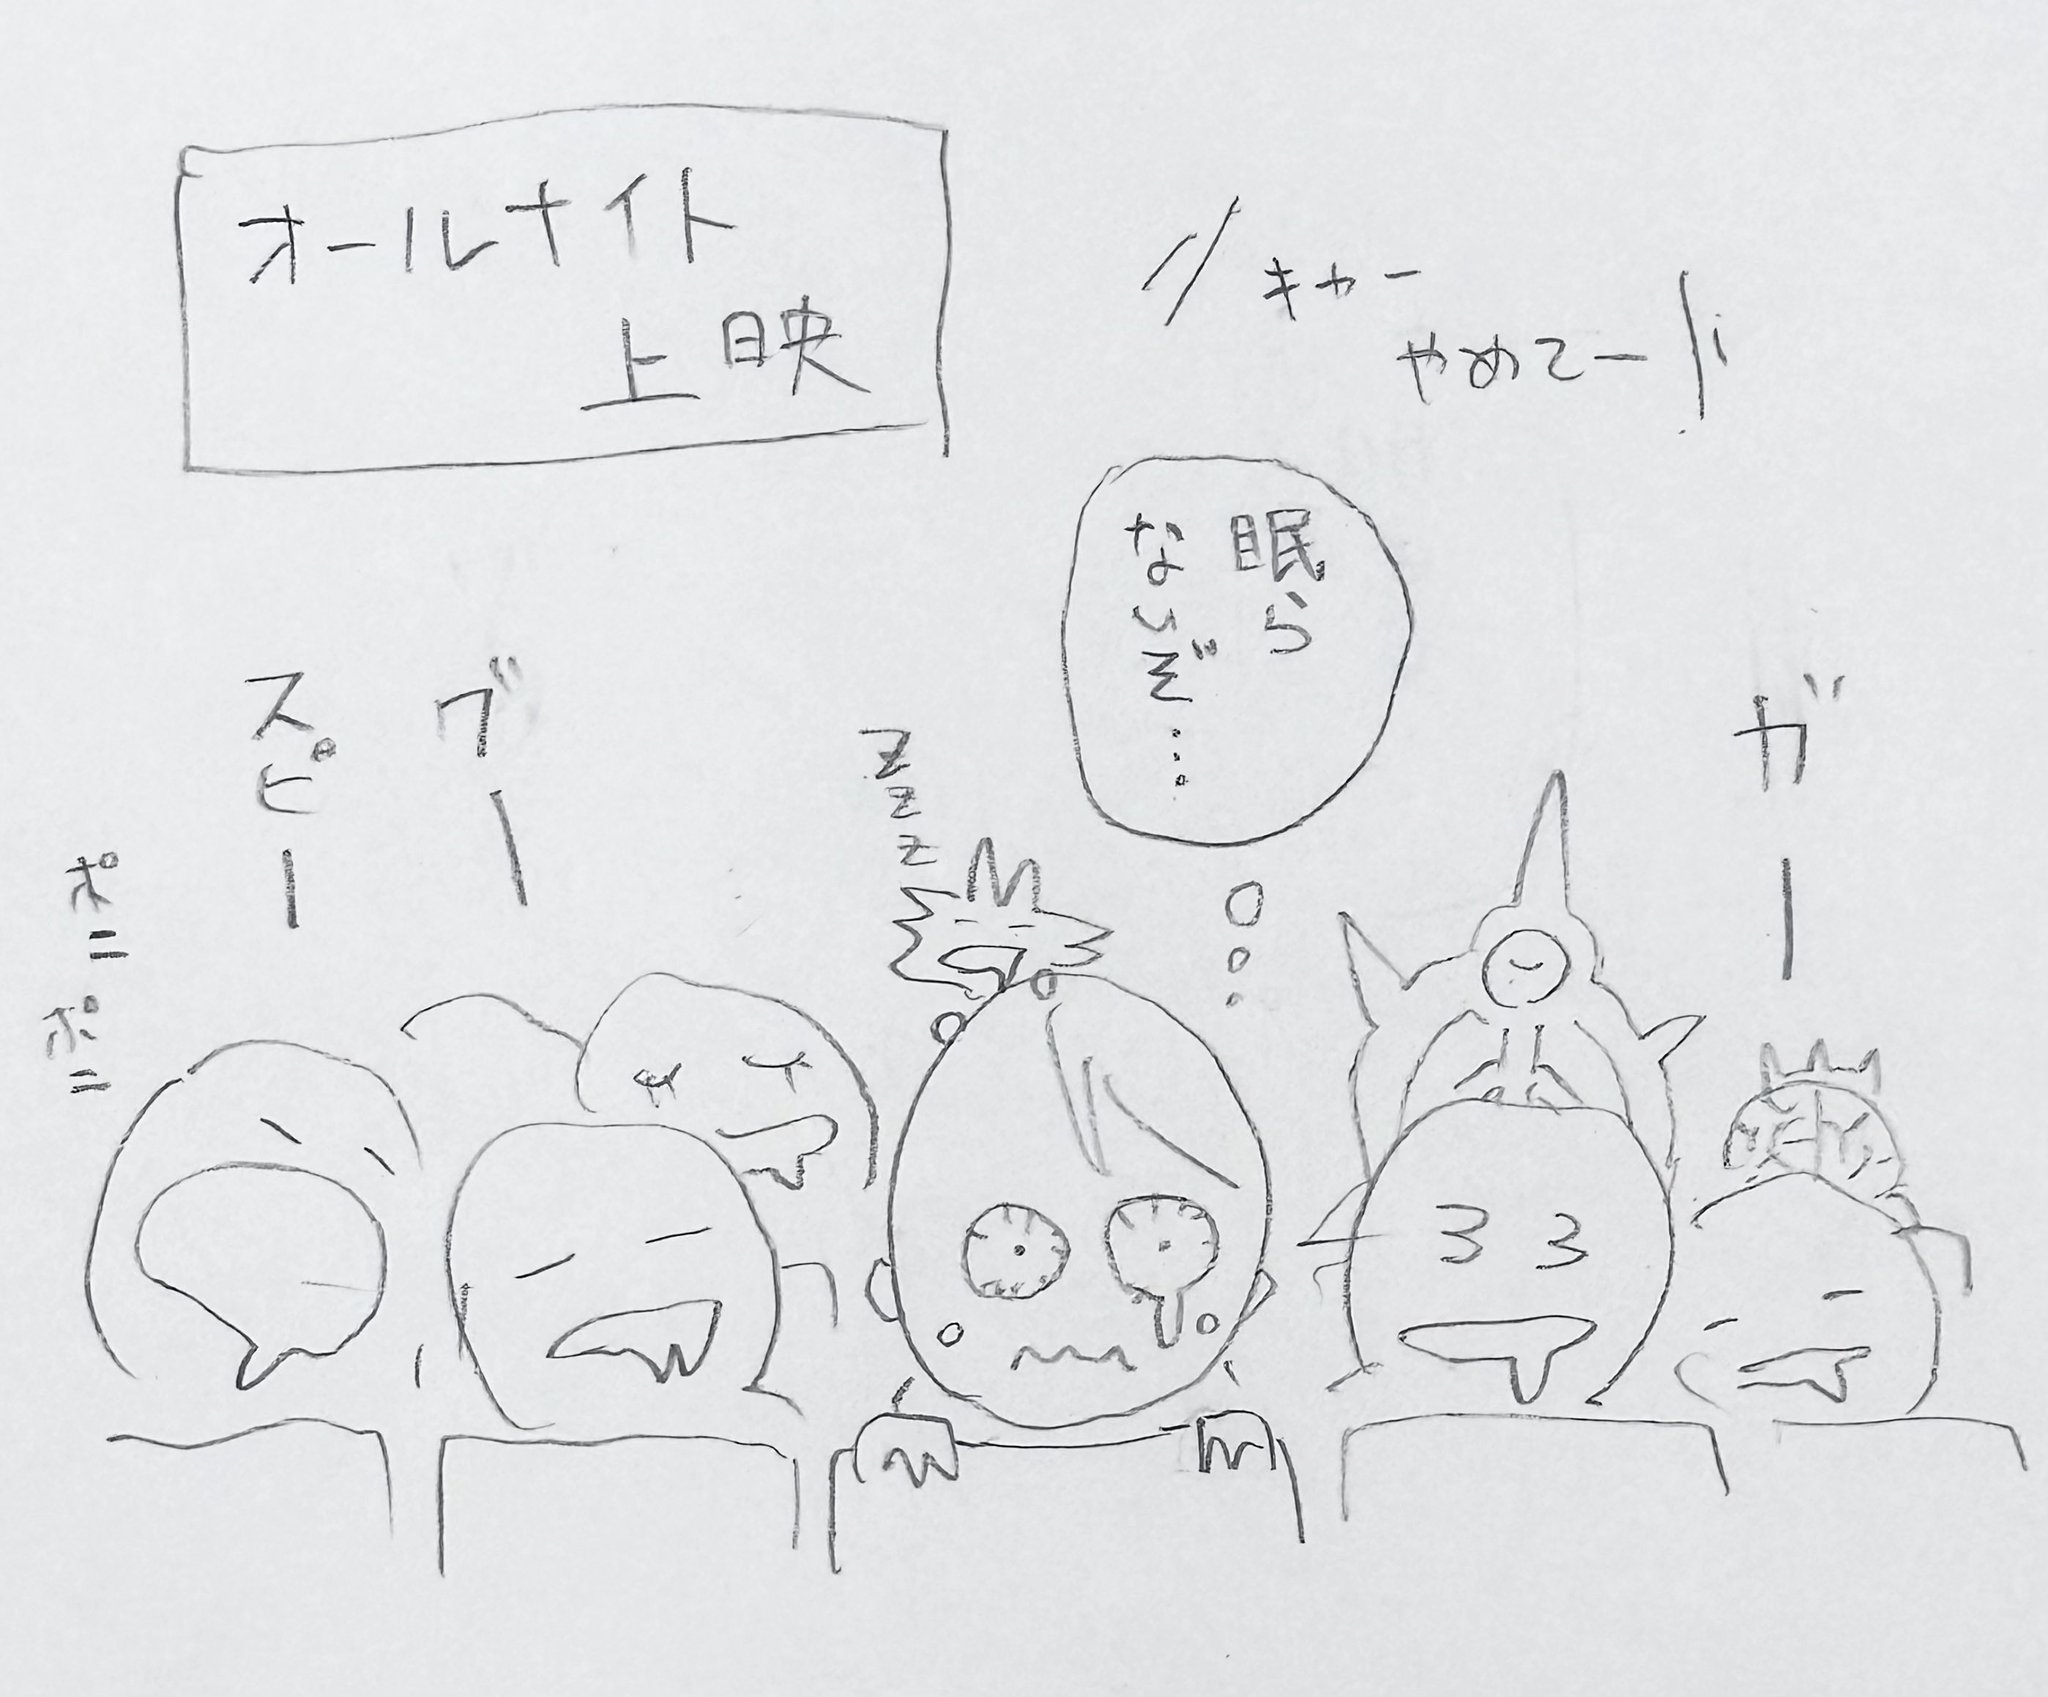 オールナイト
上映
キャー
やめてー
眠ら
ないぞ…
ガー
zzz
グー
スピー
ポニ
ポニ